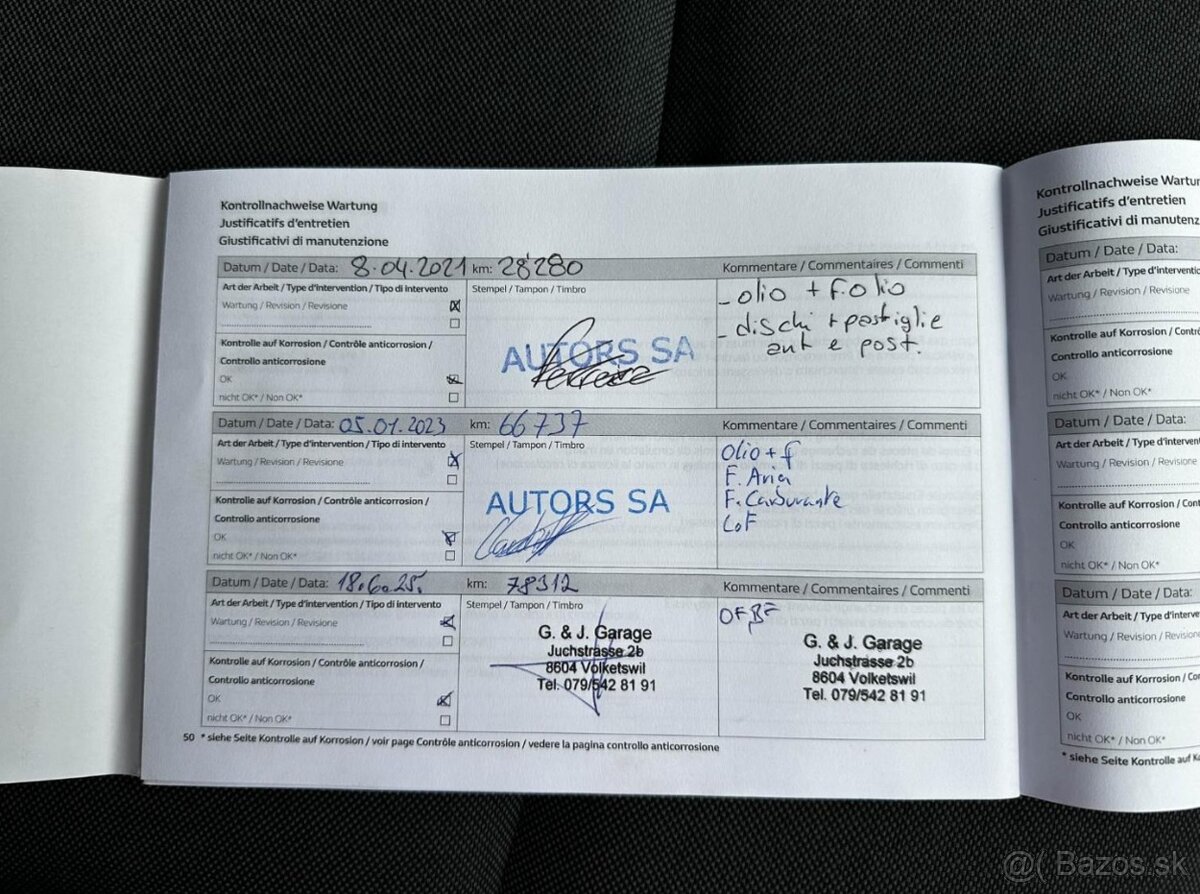 Kontrollnachweise Wartung
Justificatifs d'entretien
Giustificativi di manutenzione
Datum / Date / Data: 8.04.2021 km: 28'280 Kommentare / Commentaires / Commenti
Art der Arbeit / Type d'intervention / Tipo di intervento
Stempel / Tampon / Timbro
Wartung / Revision / Revisione
- olio + f.olio
- dischi + pastiglie
ant e post.
AUTORS SA
Kontrolle auf Korrosion / Contrôle anticorrosion /
Controllo anticorrosione
OK
nicht OK* / Non OK*
Datum / Date / Data: 05.01.2023 km: 66737 Kommentare / Commentaires / Commenti
Art der Arbeit / Type d'intervention / Tipo di intervento
Stempel / Tampon / Timbro
Wartung / Revision / Revisione
Olio + f
F. Aria
F. Carburante
LoF
AUTORS SA
Kontrolle auf Korrosion / Contrôle anticorrosion /
Controllo anticorrosione
OK
nicht OK* / Non OK*
Datum / Date / Data: 18.6.25. km: 78312 Kommentare / Commentaires / Commenti
Art der Arbeit / Type d'intervention / Tipo di intervento
Stempel / Tampon / Timbro
Wartung / Revision / Revisione
G. & J. Garage
Juchstrasse 2b
8604 Volketswil
Tel. 079/542 81 91
G. & J. Garage
Juchstrasse 2b
8604 Volketswil
Tel. 079/542 81 91
Kontrolle auf Korrosion / Contrôle anticorrosion /
Controllo anticorrosione
OK
nicht OK* / Non OK*
50 * siehe Seite Kontrolle auf Korrosion / voir page Contrôle anticorrosion / vedere la pagina controllo anticorrosione
Kontrollnachweise Wartun
Justificatifs d'entretien
Giustificativi di manutenz
Datum / Date / Data:
Art der Arbeit / Type d'interventio
Wartung / Revision / Revisione
Kontrolle auf Korrosion / Contrô
Controllo anticorrosione
OK
nicht OK* / Non OK*
Datum / Date / Data:
Art der Arbeit / Type d'interventi
Wartung / Revision / Revisione
Kontrolle auf Korrosion / Contr
Controllo anticorrosione
OK
nicht OK* / Non OK*
Datum / Date / Data:
Art der Arbeit / Type d'interve
Wartung / Revision / Revisione
Kontrolle auf Korrosion / Co
Controllo anticorrosione
OK
nicht OK* / Non OK*
* siehe Seite Kontrolle auf K
@( Bazos.sk